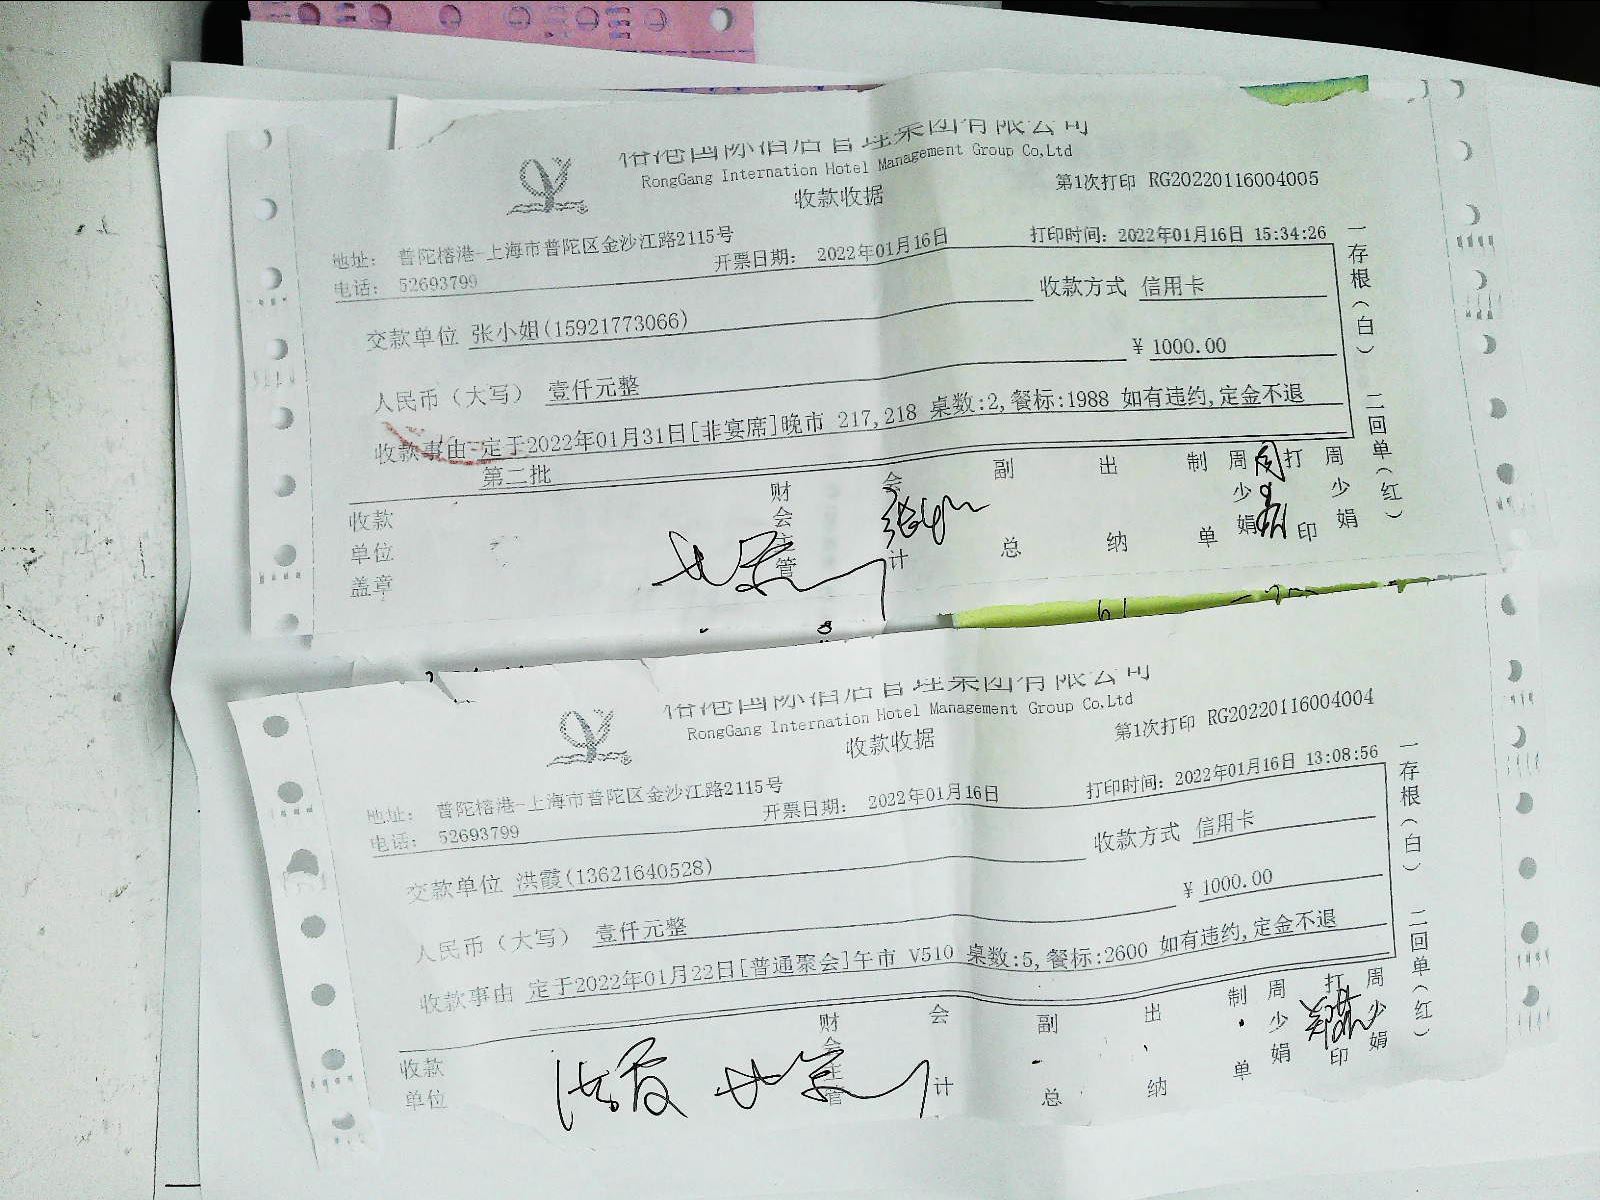 榕港国际酒店管理集团有限公司
RongGang Internation Hotel Management Group Co,Ltd
收款收据
第1次打印 RG20220116004005
地址： 普陀榕港-上海市普陀区金沙江路2115号
电话： 52693799
开票日期： 2022年01月16日
打印时间：2022年01月16日 15:34:26
交款单位 张小姐(15921773066)
收款方式 信用卡
人民币（大写） 壹仟元整
¥ 1000.00
收款事由 定于2022年01月31日[非宴席]晚市 217,218 桌数:2,餐标:1988 如有违约,定金不退
第二批
收款单位盖章
财会主管
会计
副总
出纳
制单
周少娟
打印
周少娟
一存根（白） 二回单（红）
榕港国际酒店管理集团有限公司
RongGang Internation Hotel Management Group Co,Ltd
收款收据
第1次打印 RG20220116004004
地址： 普陀榕港-上海市普陀区金沙江路2115号
电话： 52693799
开票日期： 2022年01月16日
打印时间：2022年01月16日 13:08:56
交款单位 洪霞(13621640528)
收款方式 信用卡
人民币（大写） 壹仟元整
¥ 1000.00
收款事由 定于2022年01月22日[普通聚会]午市 V510 桌数:5,餐标:2600 如有违约,定金不退
收款单位
洪霞
财会主管
会计
副总
出纳
制单
周少娟
打印
周少娟
一存根（白） 二回单（红）